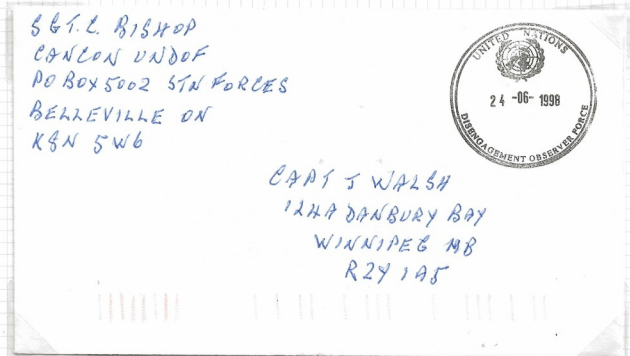 SGT. C. BISHOP
CANCON UNDOF
PO BOX 5002 STN FORCES
BELLEVILLE ON
K8N 5W6
UNITED NATIONS
24 -06- 1998
DISENGAGEMENT OBSERVER FORCE
CAPT J WALSH
124A DANBURY BAY
WINNIPEG MB
R2Y 1A5